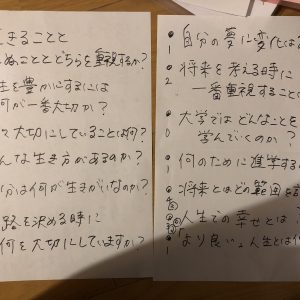 きることと
ぬこととどちらを重視するか?
生を豊かにするには
何が一番大切か?
々大切にしていることは何?
んな生き方があるのか?
分は何が生きがいなのか?
路を決める時に
何を大切にしていますか?
自分の夢に変化は
将来を考える時に
一番重視すること
大学ではどんなことを
学んでいくのか?
何のために進学する
将来とはどの範囲を
人生での幸せとは
「より良い」人生とは